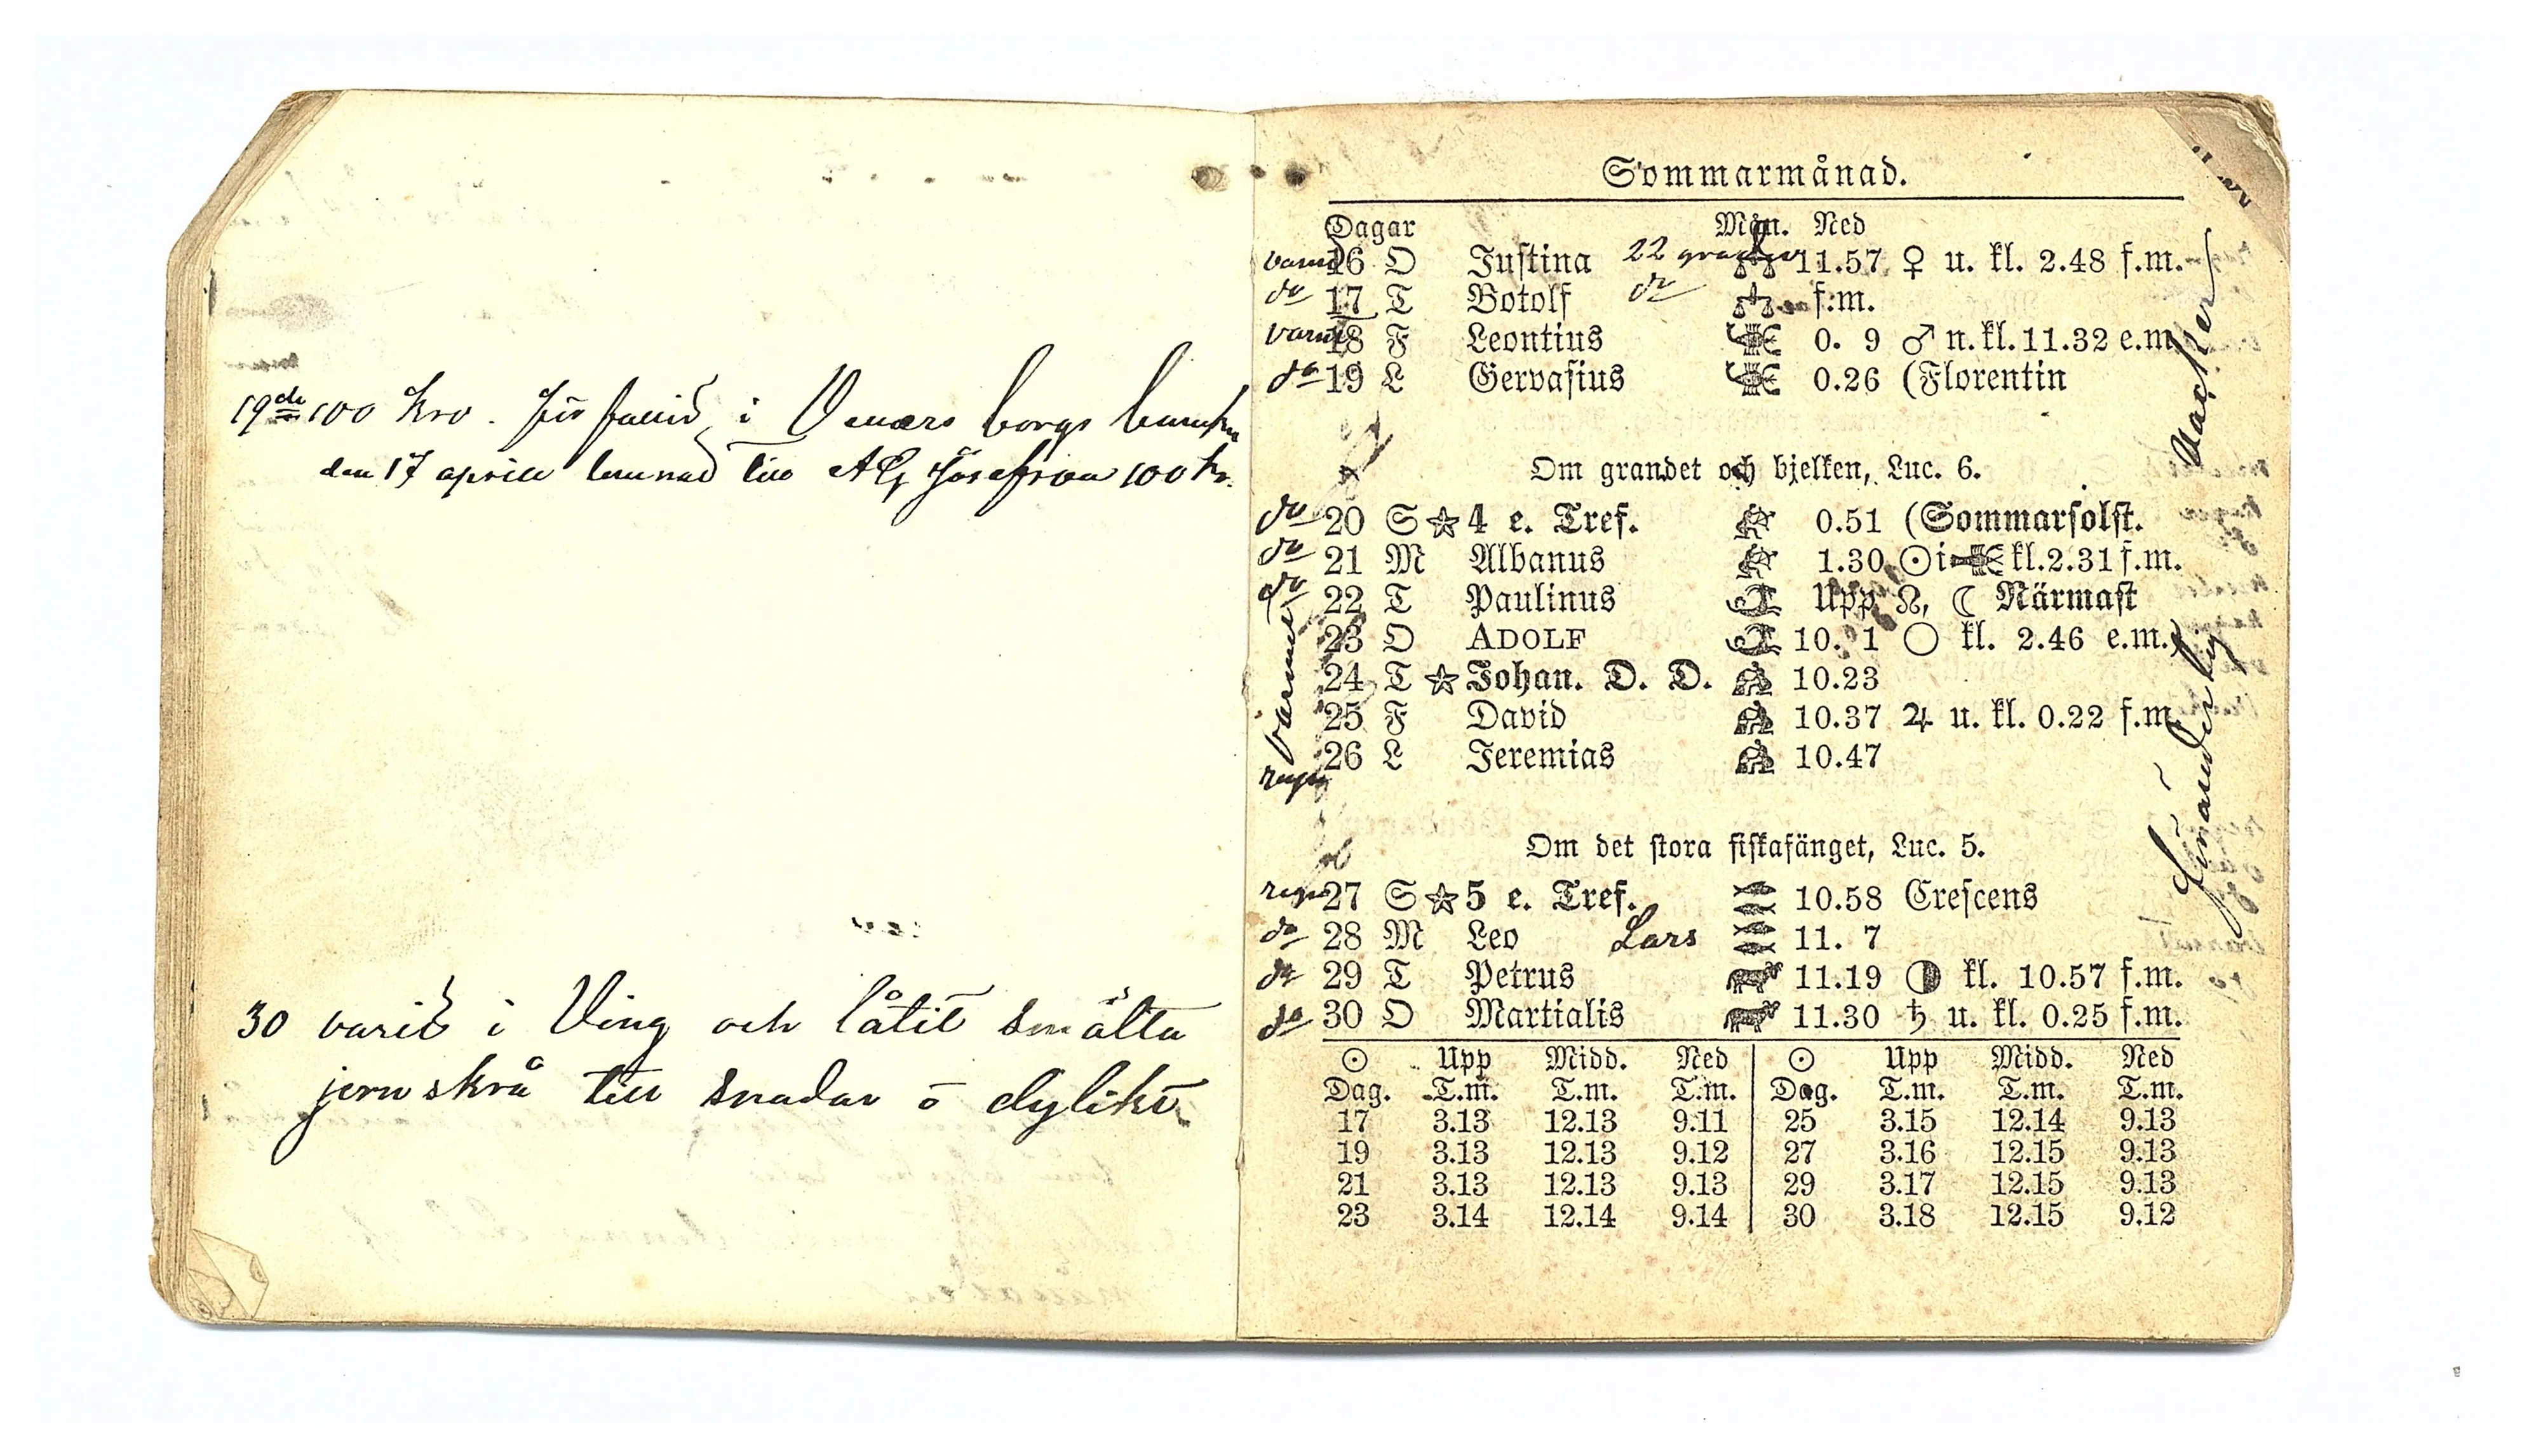 19de 100 Kro. förfallid i Venersborgs banken
den 17 aprill lemnad till A G Josefson 100 kr.
30 varit i Ving och låtit smälta
jernskrå till snadar o dylikt
Sommarmånad.
Dagar Mån. Ned
varmt 16 O Justina 22 grader 11.57 ♀ u. kl. 2.48 f.m.
do 17 T Botolf do f.m.
varmt 18 F Leontius 0. 9 ♂ n. kl. 11.32 e.m.
do 19 L Gervasius 0.26 (Florentin
Om grandet och bjelken, Luc. 6.
do 20 S ☆ 4 e. Tref. 0.51 (Sommarsolst.
do 21 M Albanus 1.30 ☉ i kl. 2.31 f.m.
do 22 T Paulinus Upp ☊, ☾ Närmast
23 O ADOLF 10. 1 ○ kl. 2.46 e.m.
varmt
24 T ☆ Johan. D. D. 10.23
25 F David 10.37 ♃ u. kl. 0.22 f.m.
26 L Jeremias 10.47
regn
Om det stora fiskafänget, Luc. 5.
regn 27 S ☆ 5 e. Tref. 10.58 Crescens
do 28 M Leo Lars 11. 7
do 29 T Petrus 11.19 ◑ kl. 10.57 f.m.
do 30 O Martialis 11.30 ♄ u. kl. 0.25 f.m.
☉ Upp Midd. Ned ☉ Upp Midd. Ned
Dag. T.m. T.m. T.m. Dag. T.m. T.m. T.m.
17 3.13 12.13 9.11 25 3.15 12.14 9.13
19 3.13 12.13 9.12 27 3.16 12.15 9.13
21 3.13 12.13 9.13 29 3.17 12.15 9.13
23 3.14 12.14 9.14 30 3.18 12.15 9.12
vacker